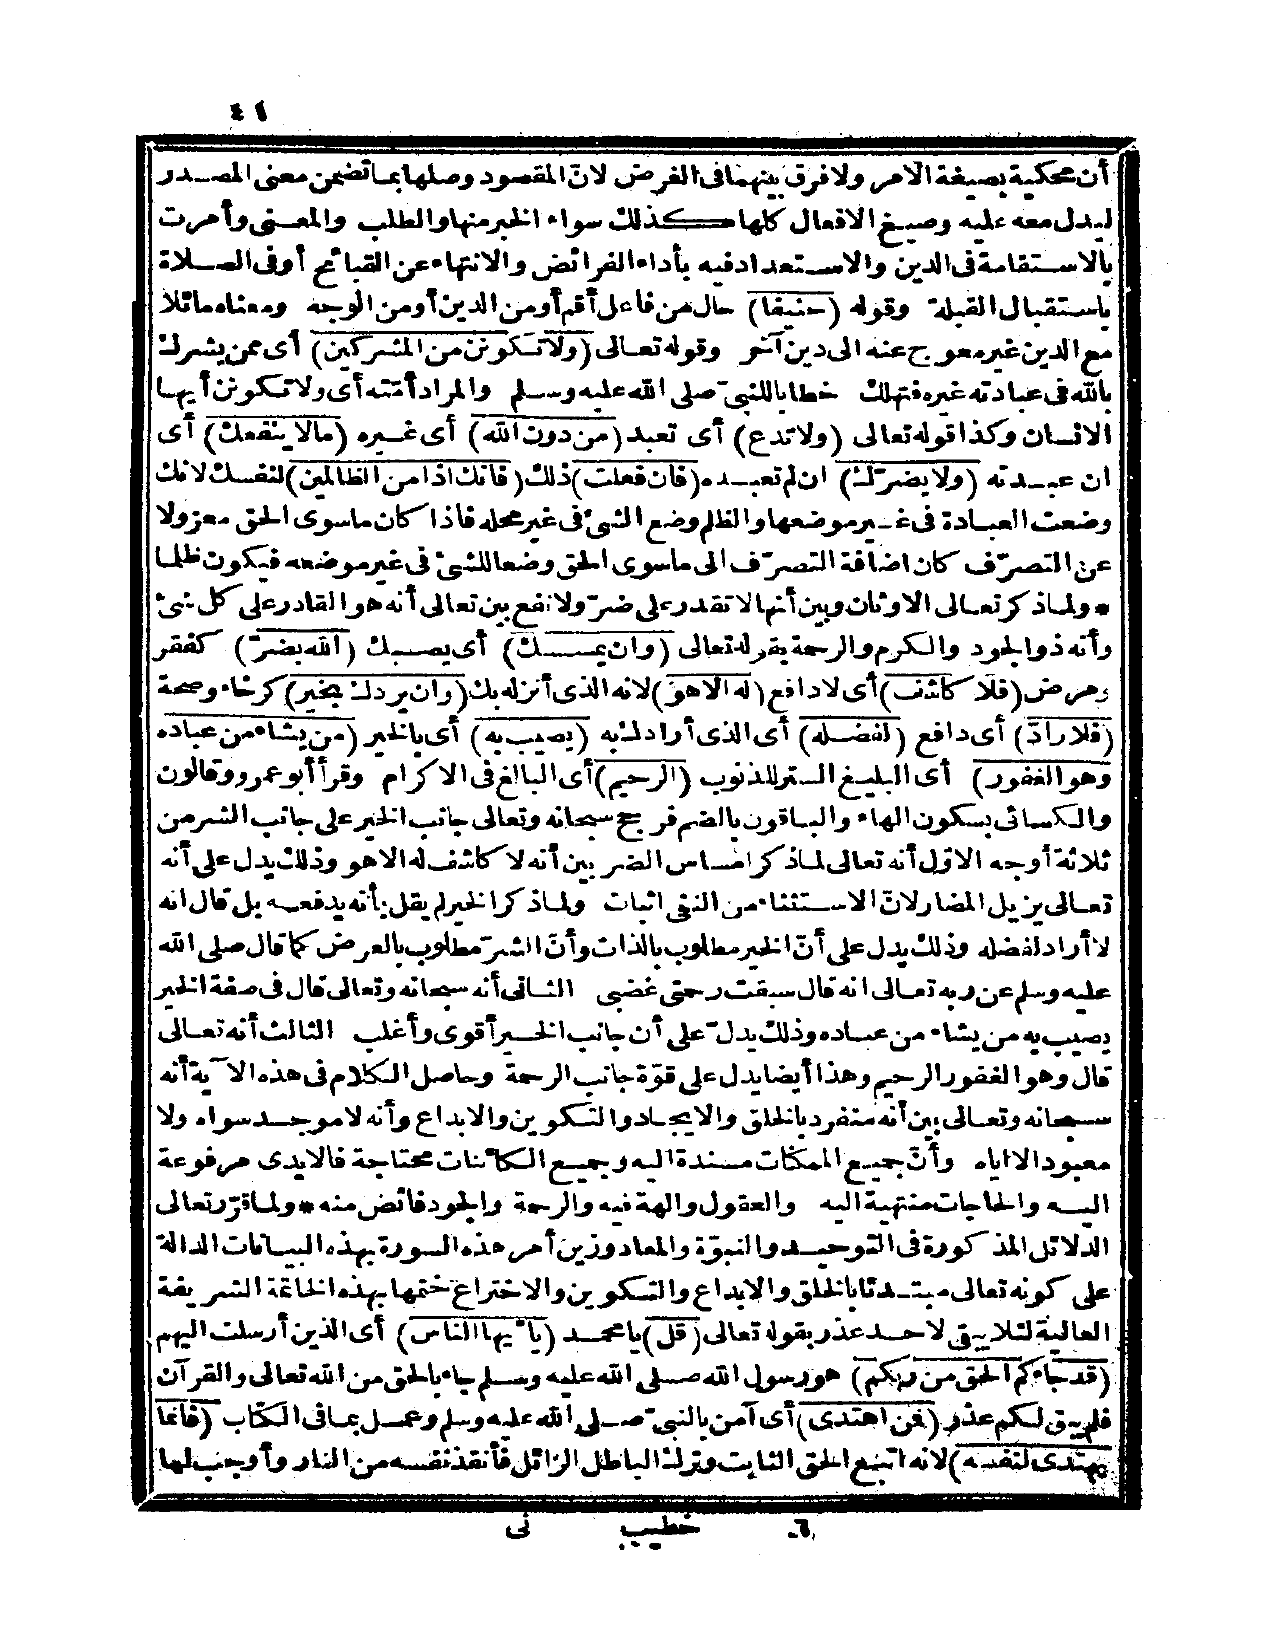 ٤١
أن محكية بصيغة الامر ولا فرق بينهما فى الغرض لانّ المقصود وصلها بما تضمن معنى المصدر
ليدل معه عليه وصيغ الافعال كلها كذلك سواء الخبر منها والطلب والمعنى وأمرت
بالاستقامة فى الدين والاستعداد فيه بأداء الفرائض والانتهاء عن القبائح أو فى الصلاة
باستقبال القبلة وقوله (حنيفا) حال من فاعل أقم أو من الدين أو من الوجه ومعناه مائلا
مع الدين غير معوج عنه الى دين آخر وقوله تعالى (ولا تكونن من المشركين) أى ممن يشرك
بالله فى عبادته غيره فتهلك خطابا للنبىّ صلى الله عليه وسلم والمراد أمّته أى ولا تكونن أيها
الانسان وكذا قوله تعالى (ولا تدع) أى تعبد (من دون الله) أى غيره (مالا ينفعك) أى
ان عبدته (ولا يضرّك) ان لم تعبده (فان فعلت) ذلك (فانك اذا من الظالمين) لنفسك لانك
وضعت العبادة فى غير موضعها والظلم وضع الشئ فى غير محله فاذا كان ما سوى الحق معزولا
عن التصرّف كان اضافة التصرّف الى ما سوى الحق وضعا للشئ فى غير موضعه فيكون ظلما
* ولما ذكر تعالى الاوثان وبين أنها لا تقدر على ضرّ ولا نفع بين تعالى أنه هو القادر على كل شئ
وأنه ذو الجود والكرم والرحمة بقوله تعالى (وان يمسسك) أى يصبك (الله بضرّ) كفقر
ومرض (فلا كاشف) أى لا دافع (له الا هو) لانه الذى أنزله بك (وان يردك بخير) كرخاء وصحة
(فلا رادّ) أى دافع (لفضله) أى الذى أرادك به (يصيب به) أى بالخير (من يشاء من عباده
وهو الغفور) أى البليغ الستر للذنوب (الرحيم) أى البالغ فى الاكرام وقرأ أبو عمرو وقالون
والكسائى بسكون الهاء والباقون بالضم فرجح سبحانه وتعالى جانب الخير على جانب الشر من
ثلاثة أوجه الاوّل أنه تعالى لما ذكر امساس الضر بين أنه لا كاشف له الا هو وذلك يدل على أنه
تعالى يزيل المضار لانّ الاستثناء من النفى اثبات ولما ذكر الخير لم يقل بأنه يدفعه بل قال انه
لا أراد لفضله وذلك يدل على أنّ الخير مطلوب بالذات وأنّ الشرّ مطلوب بالعرض كما قال صلى الله
عليه وسلم عن ربه تعالى انه قال سبقت رحمتى غضبى الثانى أنه سبحانه وتعالى قال فى صفة الخير
يصيب به من يشاء من عباده وذلك يدلّ على أن جانب الخير أقوى وأغلب الثالث أنه تعالى
قال وهو الغفور الرحيم وهذا أيضا يدل على قوّة جانب الرحمة وحاصل الكلام فى هذه الآية أنه
سبحانه وتعالى بين أنه منفرد بالخلق والايجاد والتكوين والابداع وأنه لا موجد سواه ولا
معبود الا اياه وأنّ جميع الممكنات مسندة اليه وجميع الكائنات محتاجة فالايدى مرفوعة
اليه والحاجات منتهية اليه والعقول والهة فيه والرحمة والجود فائض منه * ولما قرّر تعالى
الدلائل المذكورة فى التوحيد والنبوّة والمعاد وزين أمر هذه السورة بهذه البيانات الدالة
على كونه تعالى مبتدئا بالخلق والابداع والتكوين والاختراع ختمها بهذه الخاتمة الشريفة
العالية لئلا يبقى لاحد عذر بقوله تعالى (قل) يا محمد (يا أيها الناس) أى الذين أرسلت اليهم
(قد جاءكم الحق من ربكم) هو رسول الله صلى الله عليه وسلم جاء بالحق من الله تعالى والقرآن
فلم يبق لكم عذر (فمن اهتدى) أى آمن بالنبىّ صلى الله عليه وسلم وعمل بما فى الكتاب (فانما
يهتدى لنفسه) لانه اتبع الحق الثابت وترك الباطل الزائل فأنقذ نفسه من النار وأوجب لها
٦ خطيب نى